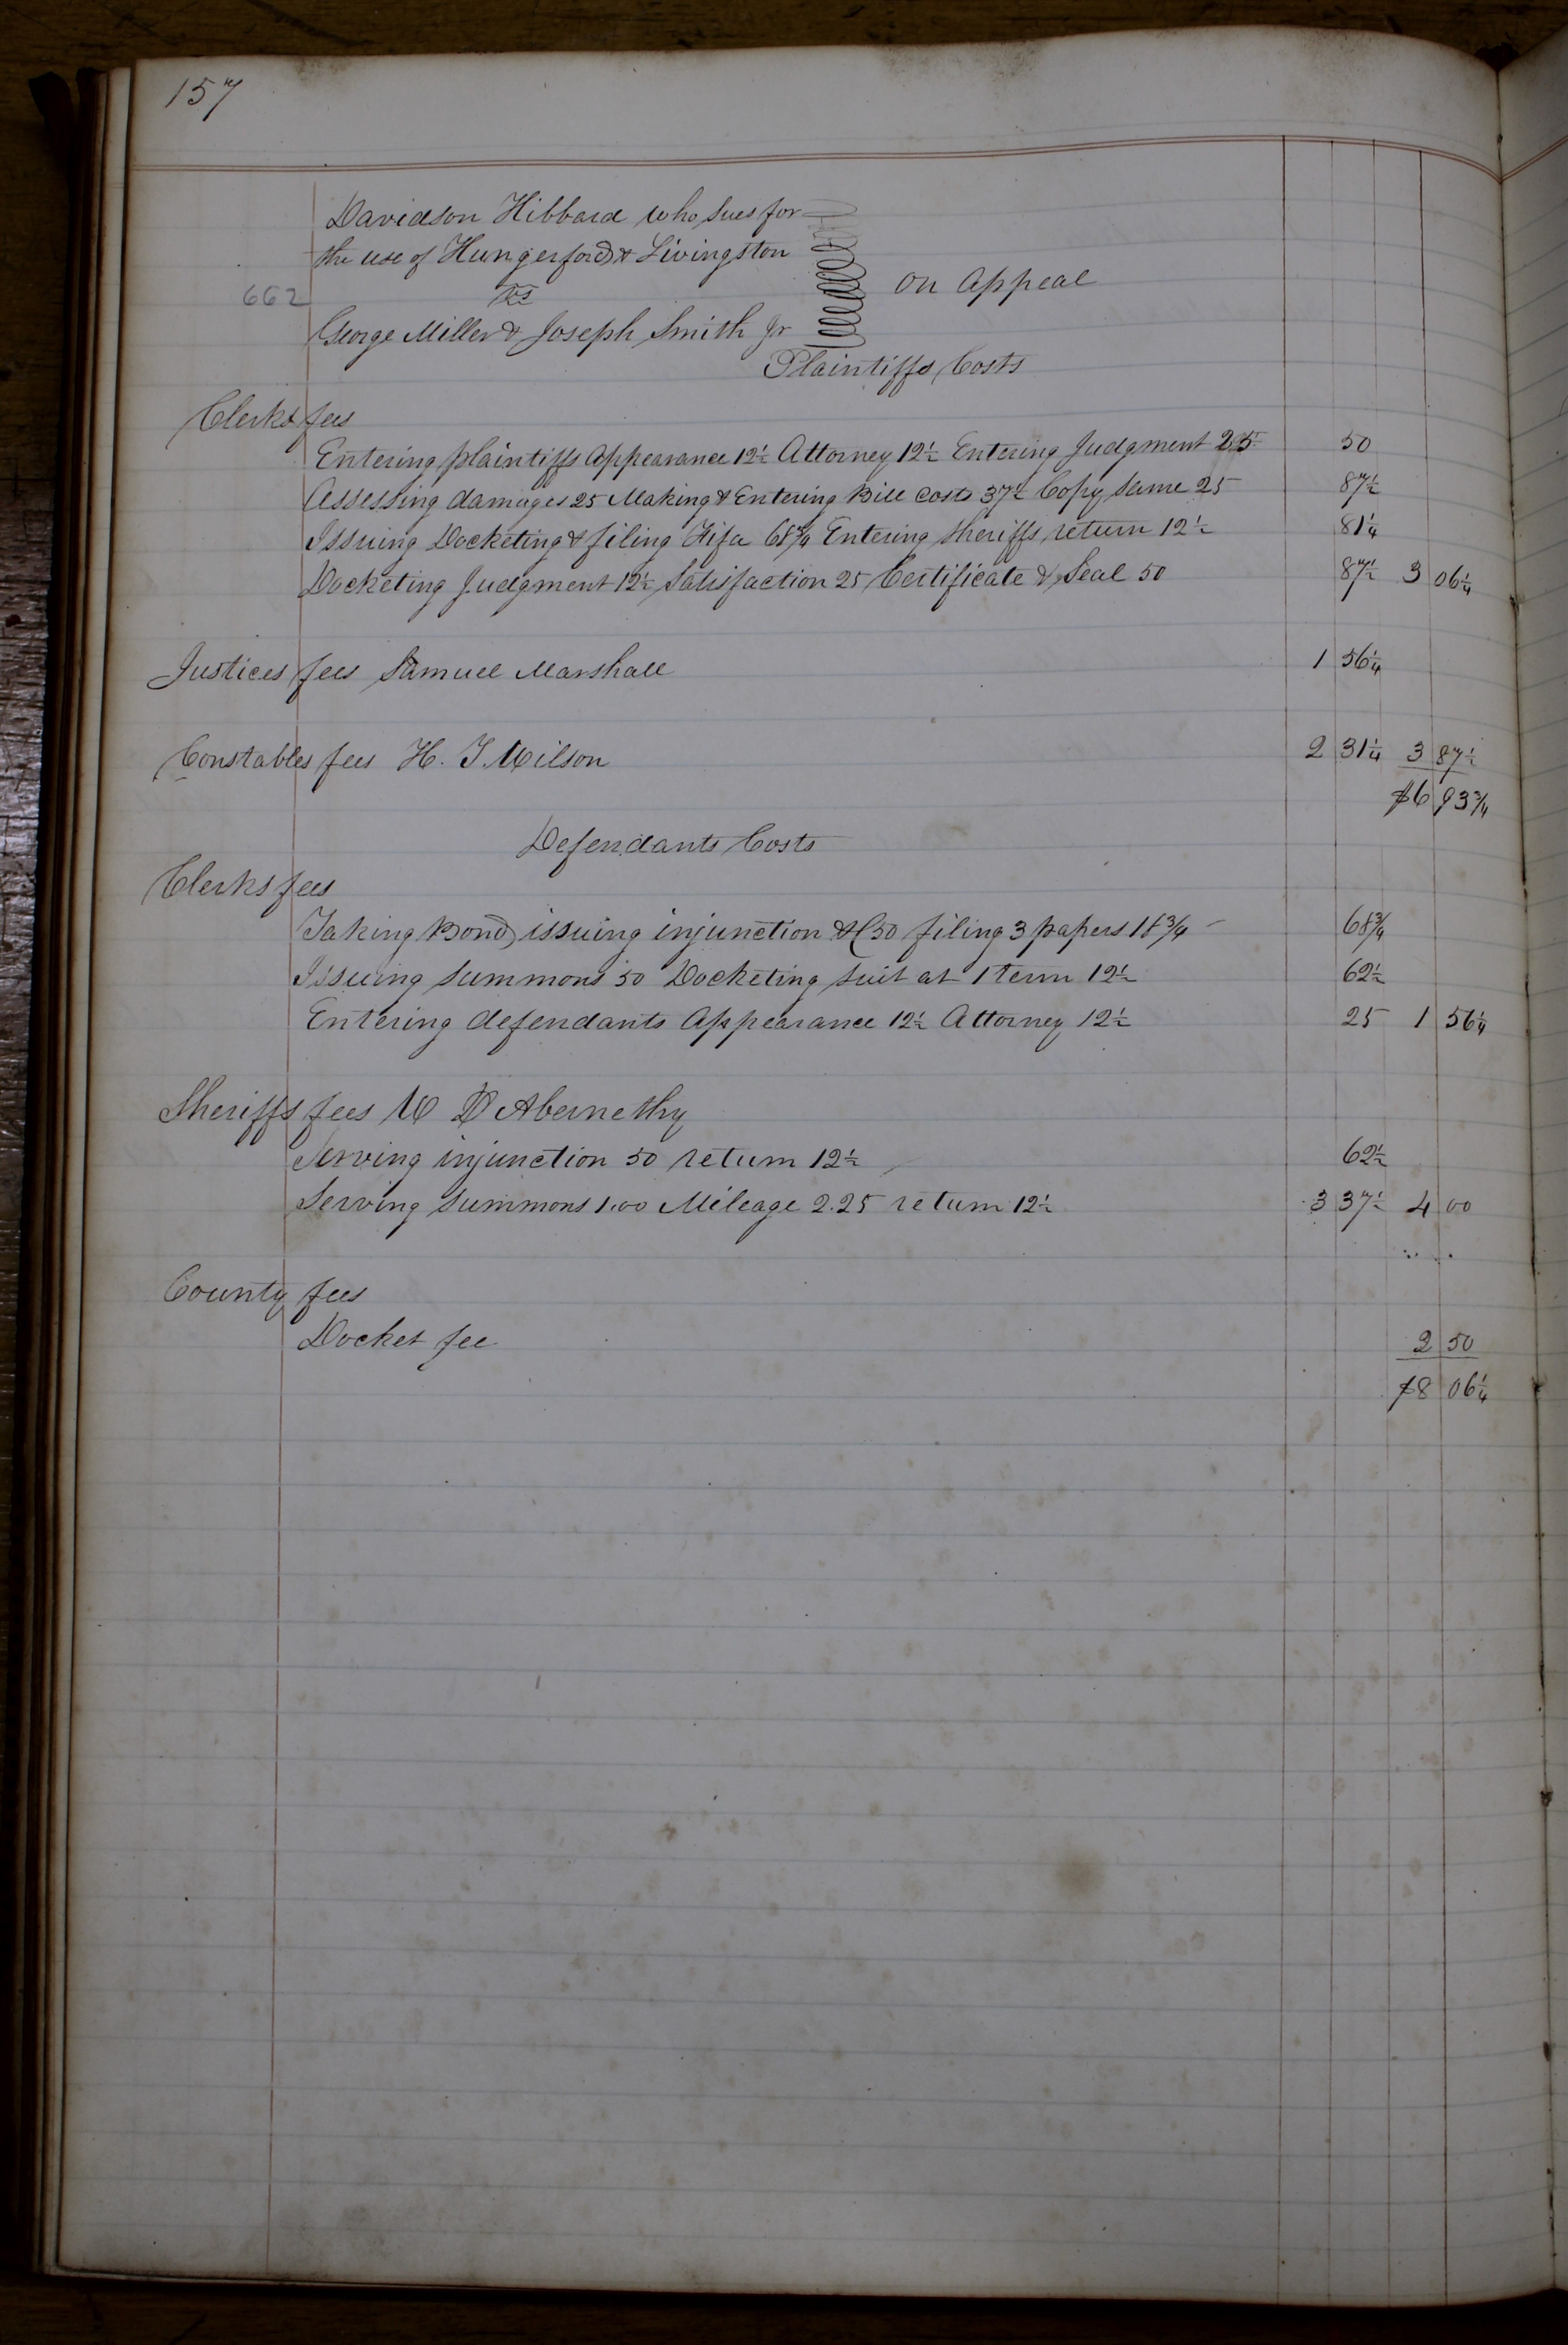 157
Davidson Hibbard who sues for
the use of Hungerford & Livingston
662 vs On Appeal
George Miller & Joseph Smith Jr
Plaintiffs Costs
Clerks fees
Entering plaintiffs Appearance 12½ Attorney 12½ Entering Judgment 25 50
Assessing damages 25 Making & Entering Bill Costs 37½ Copy same 25 87½
Issuing Docketing & filing Fifa 68¾ Entering Sheriffs return 12½ 81¼
Docketing Judgment 12½ Satisfaction 25 Certificate & Seal 50 87½ 3 06¼
Justices fees Samuel Marshall 1 56¼
Constables fees H. T. Wilson 2 31¼ 3 87½
$6 93¾
Defendants Costs
Clerks fees
Taking Bond issuing injunction &C 50 filing 3 papers 18¾ 68¾
Issuing Summons 50 Docketing suit at 1 term 12½ 62½
Entering defendants Appearance 12½ Attorney 12½ 25 1 56¼
Sheriffs fees W D Abernethy
Serving injunction 50 return 12½ 62½
Serving Summons 1.00 Mileage 2.25 return 12½ 3 37½ 4 00
County fees
Docket fee 2 50
$8 06¼